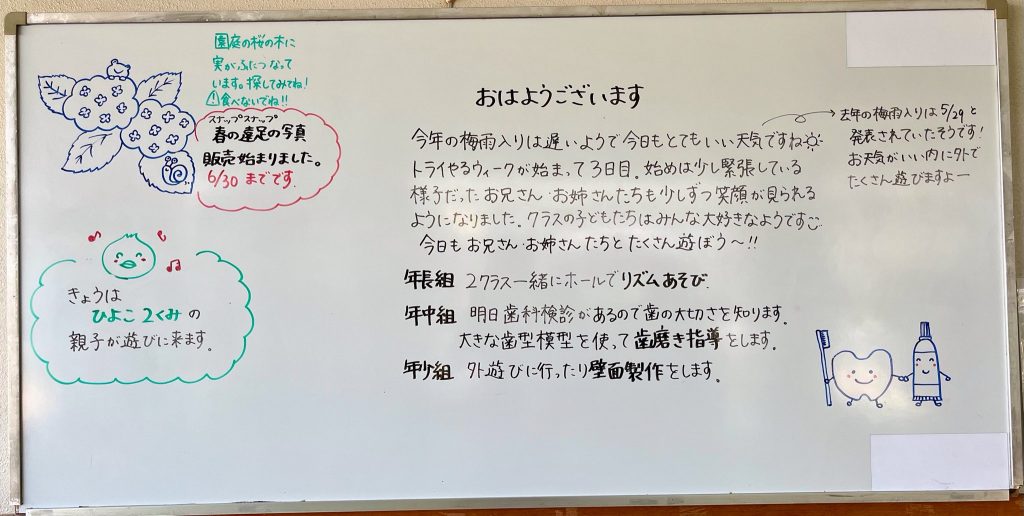 園庭の桜の木に
実がふたつなって
います。探してみてね!
食べないでね!!
スナップスナップ
春の遠足の写真
販売始まりました。
6/30 までです。
きょうは
ひよこ2くみの
親子が遊びに来ます。
おはようございます
今年の梅雨入りは遅いようで今日もとてもいい天気ですね
トライやるウィークが始まって3日目。始めは少し緊張している
様子だったお兄さん・お姉さんたちも少しずつ笑顔が見られる
ようになりました。クラスの子どもたちはみんな大好きなようです
今日もお兄さん・お姉さんたちとたくさん遊ぼう〜!!
年長組 2クラス一緒にホールでリズムあそび.
年中組 明日歯科検診があるので歯の大切さを知ります。
大きな歯型模型を使って歯磨き指導をします。
年少組 外遊びに行ったり壁面製作をします。
去年の梅雨入りは5/29と
発表されていたそうです!
お天気がいい内に外で
たくさん遊びますよー